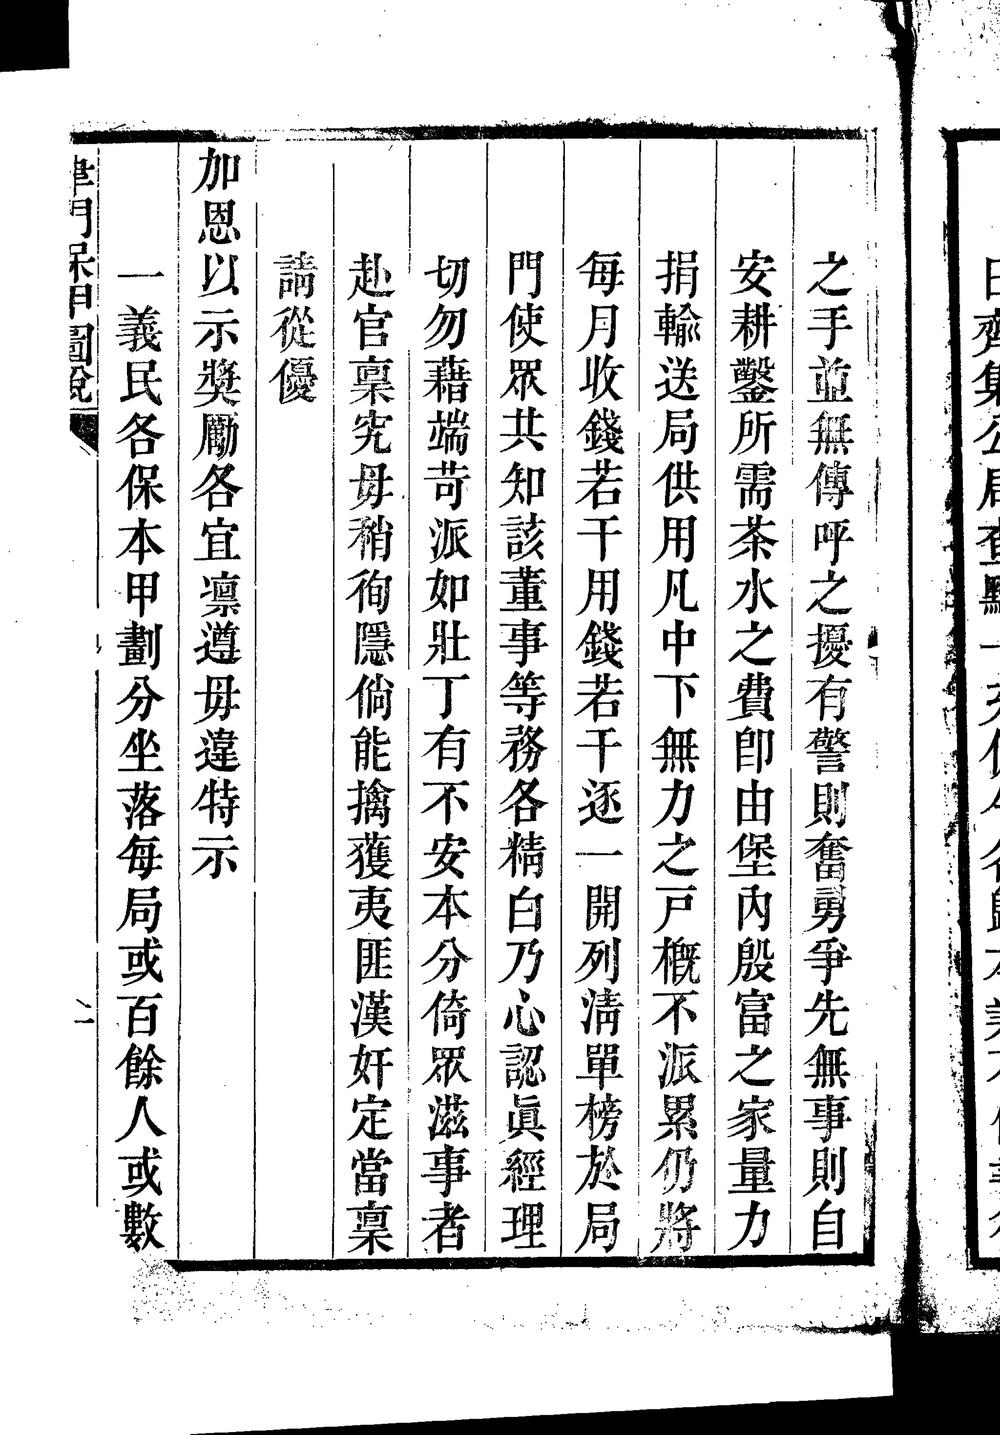 之手並無傳呼之擾有警則奮勇爭先無事則自
安耕鑿所需茶水之費卽由堡內殷富之家量力
捐輸送局供用凡中下無力之戸概不派累仍將
每月收錢若干用錢若干逐一開列清單榜於局
門使眾共知該董事等務各精白乃心認眞經理
切勿藉端苛派如壯丁有不安本分倚眾滋事者
赴官稟究毋稍徇隱倘能擒獲夷匪漢奸定當稟
請從優
加恩以示獎勵各宜凛遵毋違特示
一義民各保本甲劃分坐落每局或百餘人或數
津門保甲圖說
二